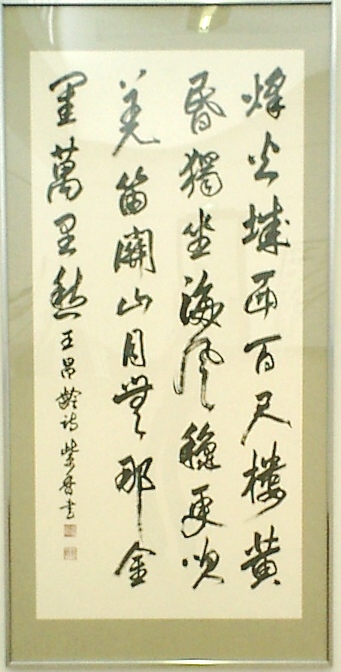 烽火城西百尺樓黄
昏獨坐海風穐更吹
羌笛關山月無那金
閨萬里愁 王昌齡詩 紫香書